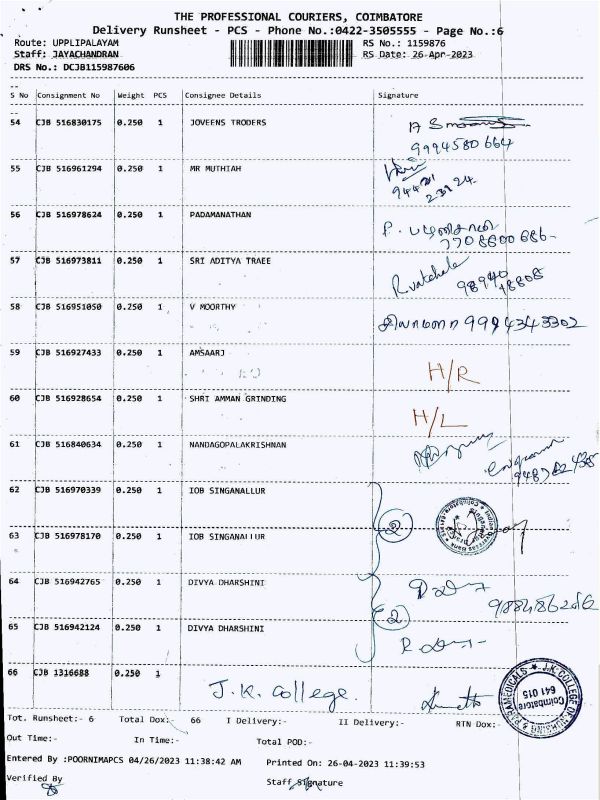 THE PROFESSIONAL COURIERS, COIMBATORE
Delivery Runsheet - PCS - Phone No.:0422-3505555 - Page No.:6
Route: UPPLIPALAYAM RS No.: 1159876
Staff: JAYACHANDRAN RS Date: 26-Apr-2023
DRS No.: DCJB115987606
S No Consignment No Weight PCS Consignee Details Signature
54 CJB 516830175 0.250 1 JOVEENS TRODERS
9994580664
55 CJB 516961294 0.250 1 MR MUTHIAH
94421
23124
56 CJB 516978624 0.250 1 PADAMANATHAN
7708600686
57 CJB 516973811 0.250 1 SRI ADITYA TRAEE
R.vatchala
98940
18808
58 CJB 516951050 0.250 1 V MOORTHY
9994343302
59 CJB 516927433 0.250 1 AMSAARJ
H/R
60 CJB 516928654 0.250 1 SHRI AMMAN GRINDING
H/L
61 CJB 516840634 0.250 1 NANDAGOPALAKRISHNAN
62 CJB 516970339 0.250 1 IOB SINGANALLUR
2
63 CJB 516978170 0.250 1 IOB SINGANALLUR
64 CJB 516942765 0.250 1 DIVYA DHARSHINI
2
65 CJB 516942124 0.250 1 DIVYA DHARSHINI
66 CJB 1316688 0.250 1
J.K. College.
J.K. COLLEGE OF NURSING & PARAMEDICALS
Coimbatore
641 015
Tot. Runsheet:- 6 Total Dox:- 66 I Delivery:- II Delivery:- RTN Dox:-
Out Time:- In Time:- Total POD:-
Entered By :POORNIMAPCS 04/26/2023 11:38:42 AM Printed On: 26-04-2023 11:39:53
Verified By Staff Signature